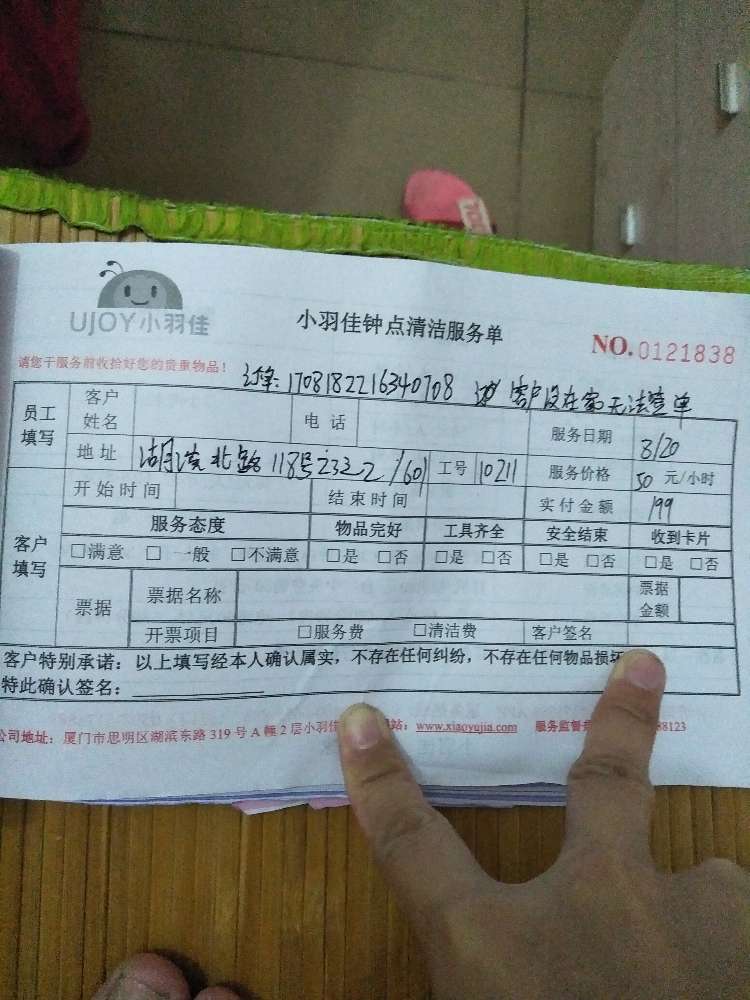 UJOY小羽佳
小羽佳钟点清洁服务单
NO.0121838
请您于服务前收拾好您的贵重物品！
1708182216340708 客户没在家无法签单
员工填写 客户姓名 电话 服务日期 8/20
地址 118号 601 工号 10211 服务价格 50 元/小时
开始时间 结束时间 实付金额 199
客户填写 服务态度 物品完好 工具齐全 安全结束 收到卡片
□满意 □一般 □不满意 □是 □否 □是 □否 □是 □否 □是 □否
票据 票据名称 票据金额
开票项目 □服务费 □清洁费 客户签名
客户特别承诺：以上填写经本人确认属实，不存在任何纠纷，不存在任何物品损坏
特此确认签名：
公司地址：厦门市思明区湖滨东路 319 号 A 幢 2 层小羽佳 站：www.xiaoyujia.com 服务监督 88123